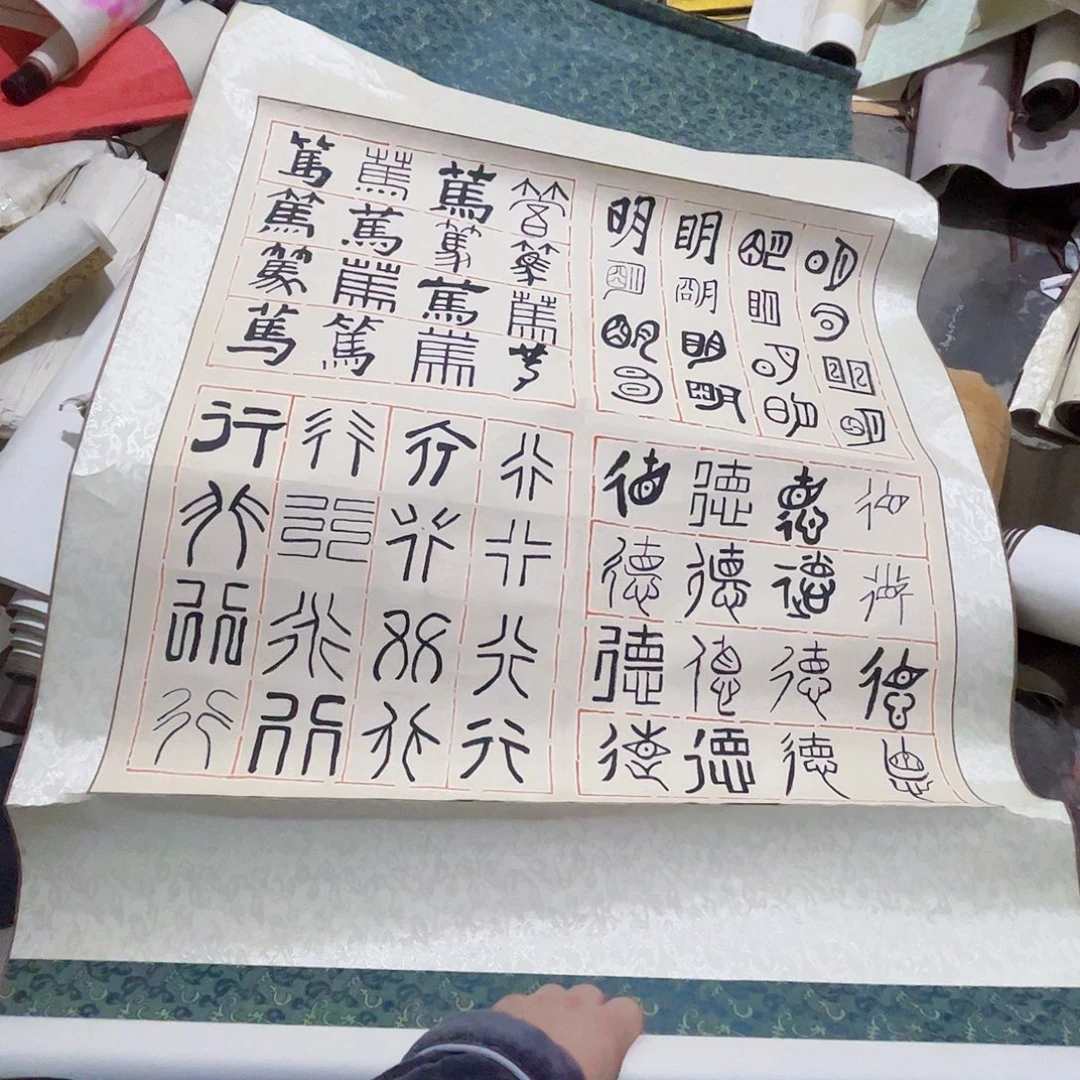 篤 篤 篤 篤
篤 篤 篤 篤
篤 篤 篤 篤
篤 篤 篤 篤
明 明 明 明
明 明 明 明
明 明 明 明
明 明 明 明
行 行 行 行
行 行 行 行
行 行 行 行
行 行 行 行
德 德 德 德
德 德 德 德
德 德 德 德
德 德 德 德